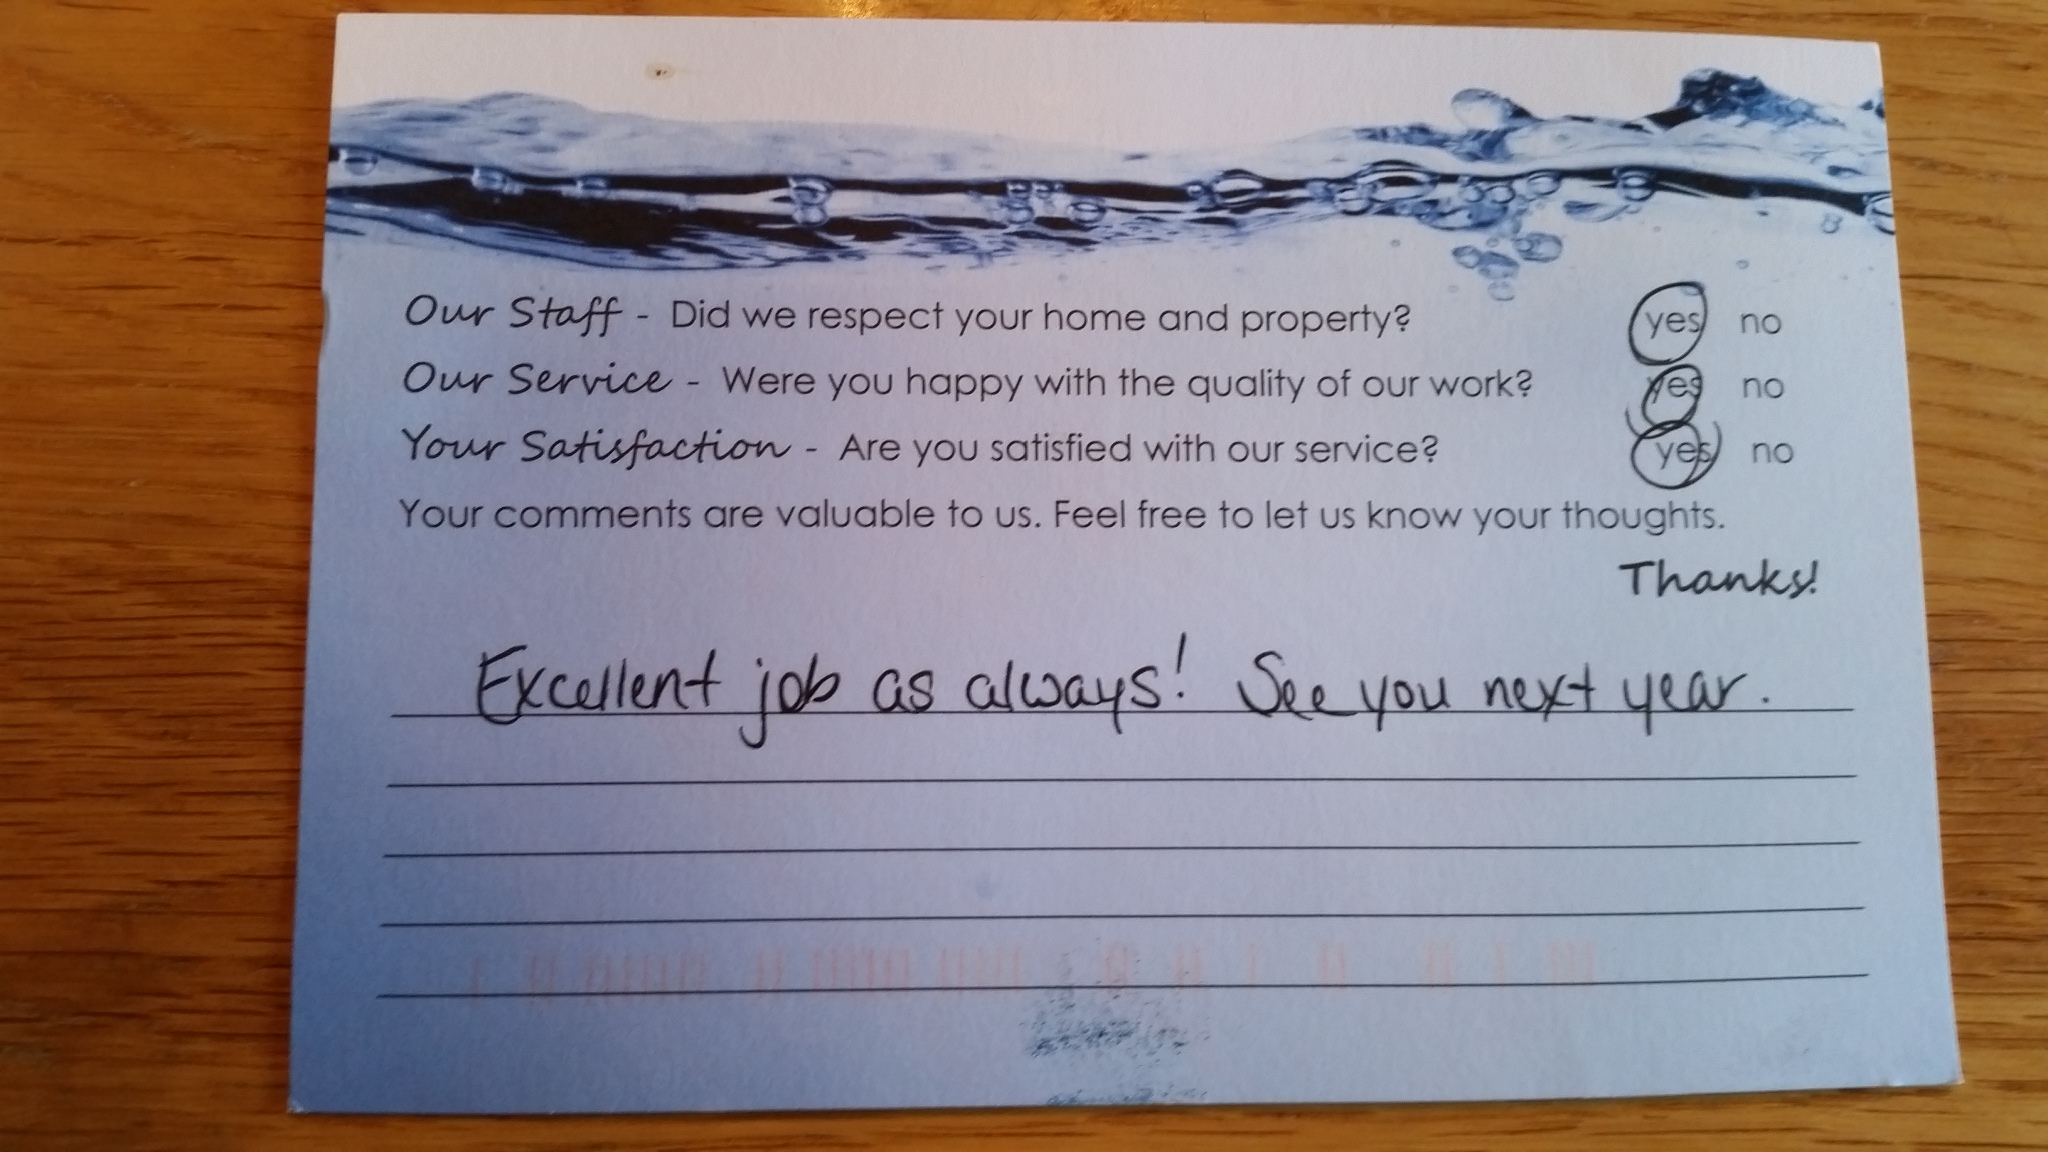 Our Staff - Did we respect your home and property? yes no
Our Service - Were you happy with the quality of our work? yes no
Your Satisfaction - Are you satisfied with our service? yes no
Your comments are valuable to us. Feel free to let us know your thoughts.
Thanks!
Excellent job as always! See you next year.